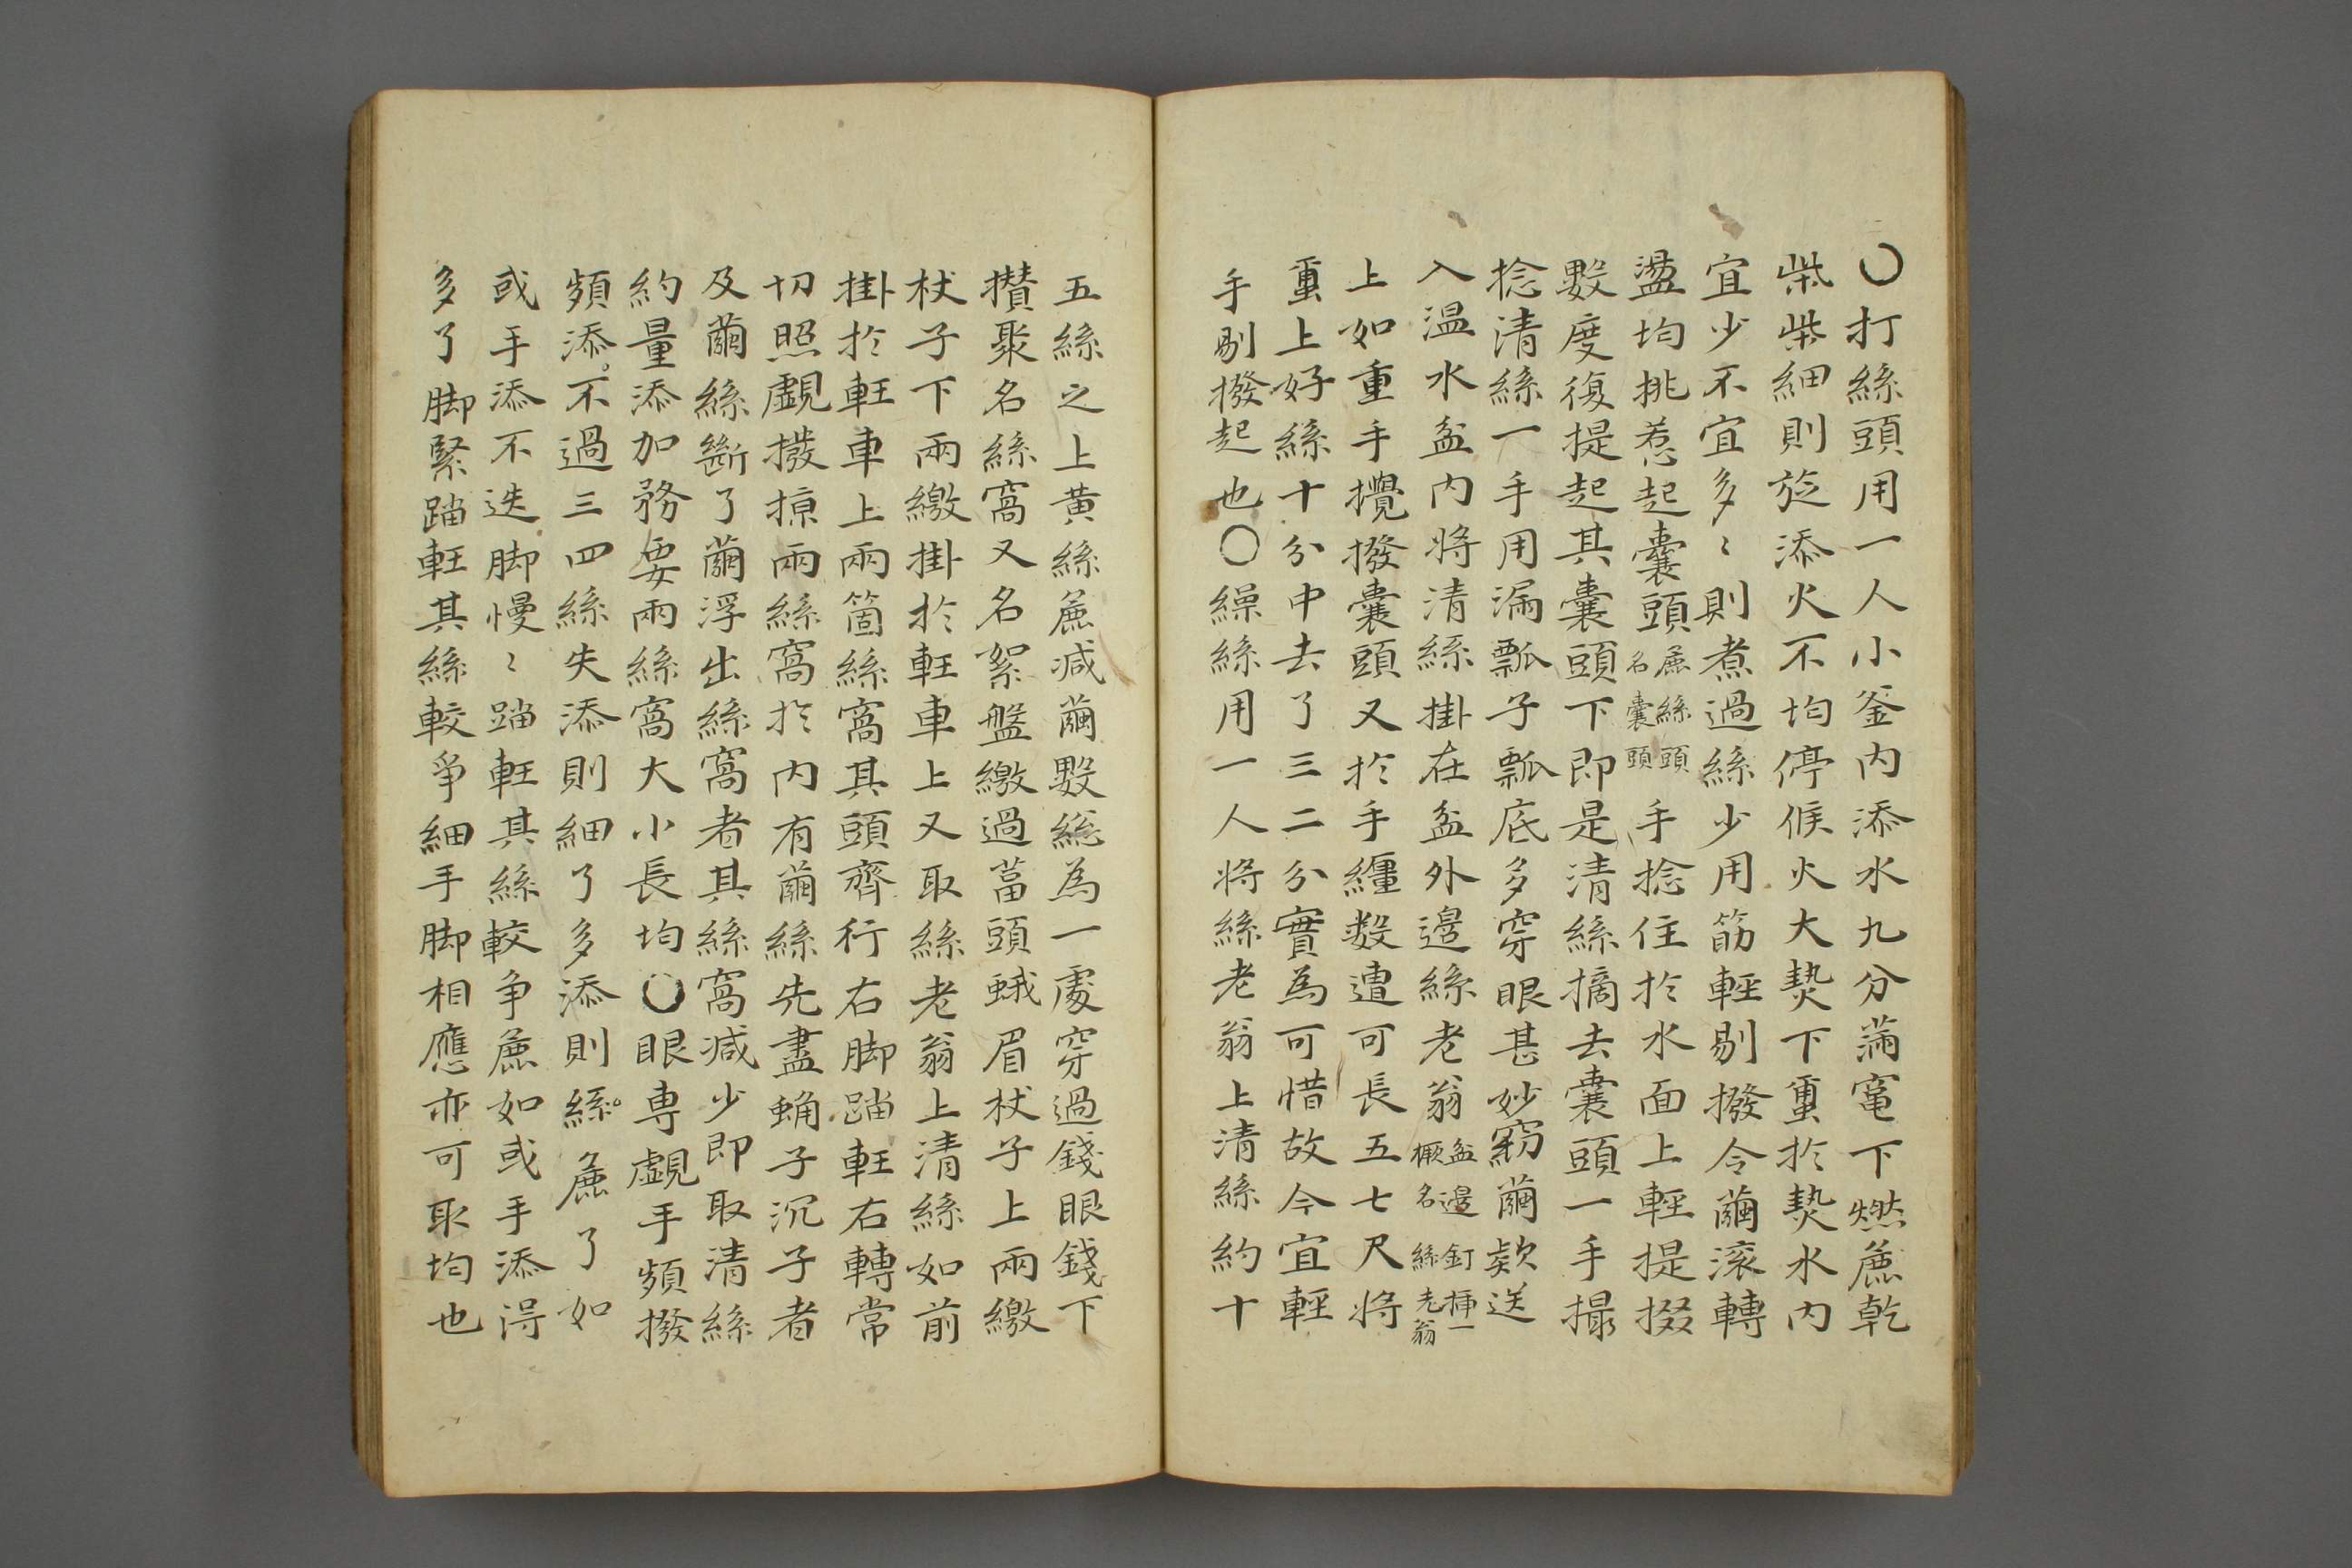 〇打絲頭用一人小釜内添水九分滿竃下燃麄乾
柴柴細則旋添火不均停候火大𤍠下䖝於𤍠水内
宜少不宜多〻則煮過絲少用筋輕剔撥令蠒滚轉
盪均挑惹起囊頭麄絲頭名囊頭手捻住於水面上輕提掇
數度復提起其囊頭下即是清絲摘去囊頭一手撮
捻清絲一手用漏瓢子瓢底多穿眼甚妙窮蠒欵送
入温水盆内将清絲掛在盆外邉絲老翁盆邉釘揷一橛名絲老翁
上如重手攪撥囊頭又於手纒数遭可長五七尺将
䖝上好絲十分中去了三二分實為可惜故今宜輕
手剔撥起也〇繰絲用一人将絲老翁上清絲約十
五絲之上黄絲麄减蠒數総為一處穿過錢眼錢下
攅聚名絲窩又名絮盤繳過䓪頭蛾眉杖子上兩繳
杖子下兩繳掛於軠車上又取絲老翁上清絲如前
掛於軠車上兩箇絲窩其頭齊行右脚踏軠右轉常
切照覷撥掠兩絲窩於内有蠒絲先盡蛹子沉子者
及蠒絲斷了蠒浮出絲窩者其絲窩减少即取清絲
約量添加務要兩絲窩大小長均〇眼専覷手頻撥
頻添不過三四絲失添則細了多添則絲麄了如
或手添不迭脚慢〻踏軠其絲較争麄如或手添淂
多了脚緊踏軠其絲較爭細手脚相應亦可取均也